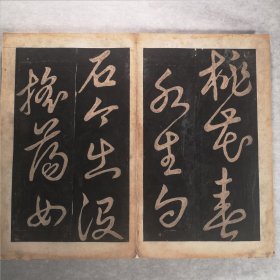 桃花春
水生白
石今出没
摇荡如